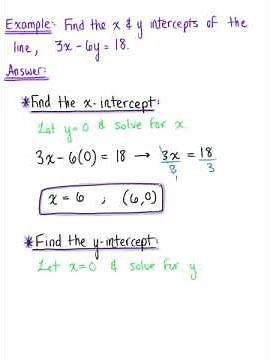 Example: Find the x & y intercepts of the
line, 3x - 6y = 18.
Answer:
*Find the x-intercept:
Let y=0 & solve for x.
3x - 6(0) = 18 → 3x/3 = 18/3
x = 6 , (6,0)
*Find the y-intercept:
Let x=0 & solve for y.